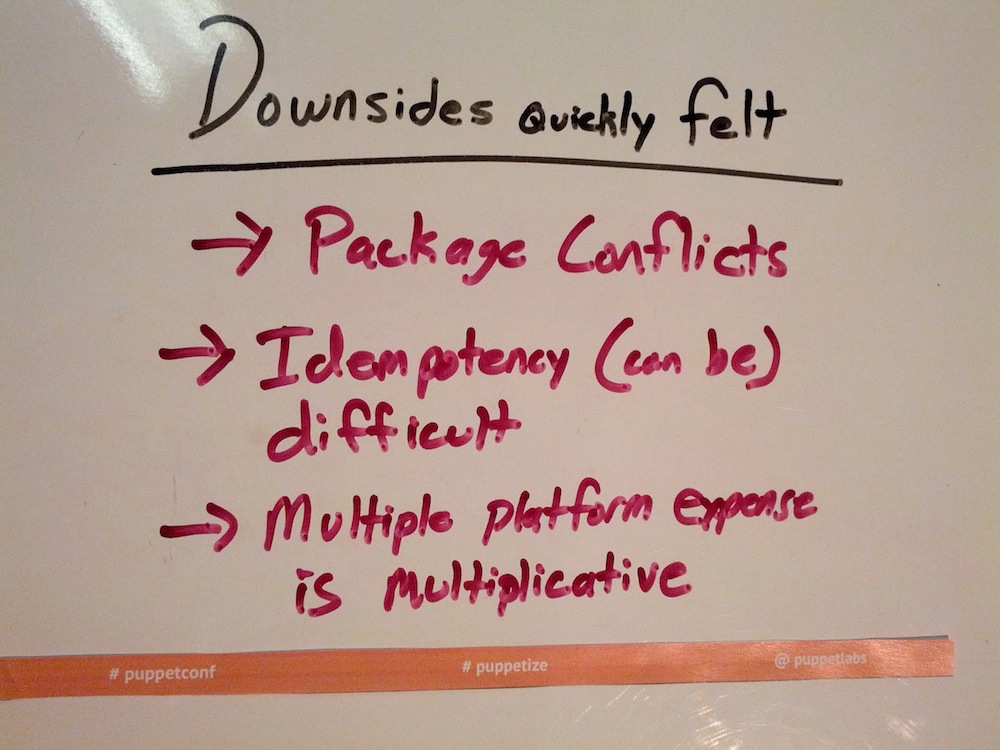 Downsides Quickly felt
→ Package Conflicts
→ Idempotency (can be)
difficult
→ Multiple platform expense
is multiplicative
# puppetconf # puppetize @ puppetlabs